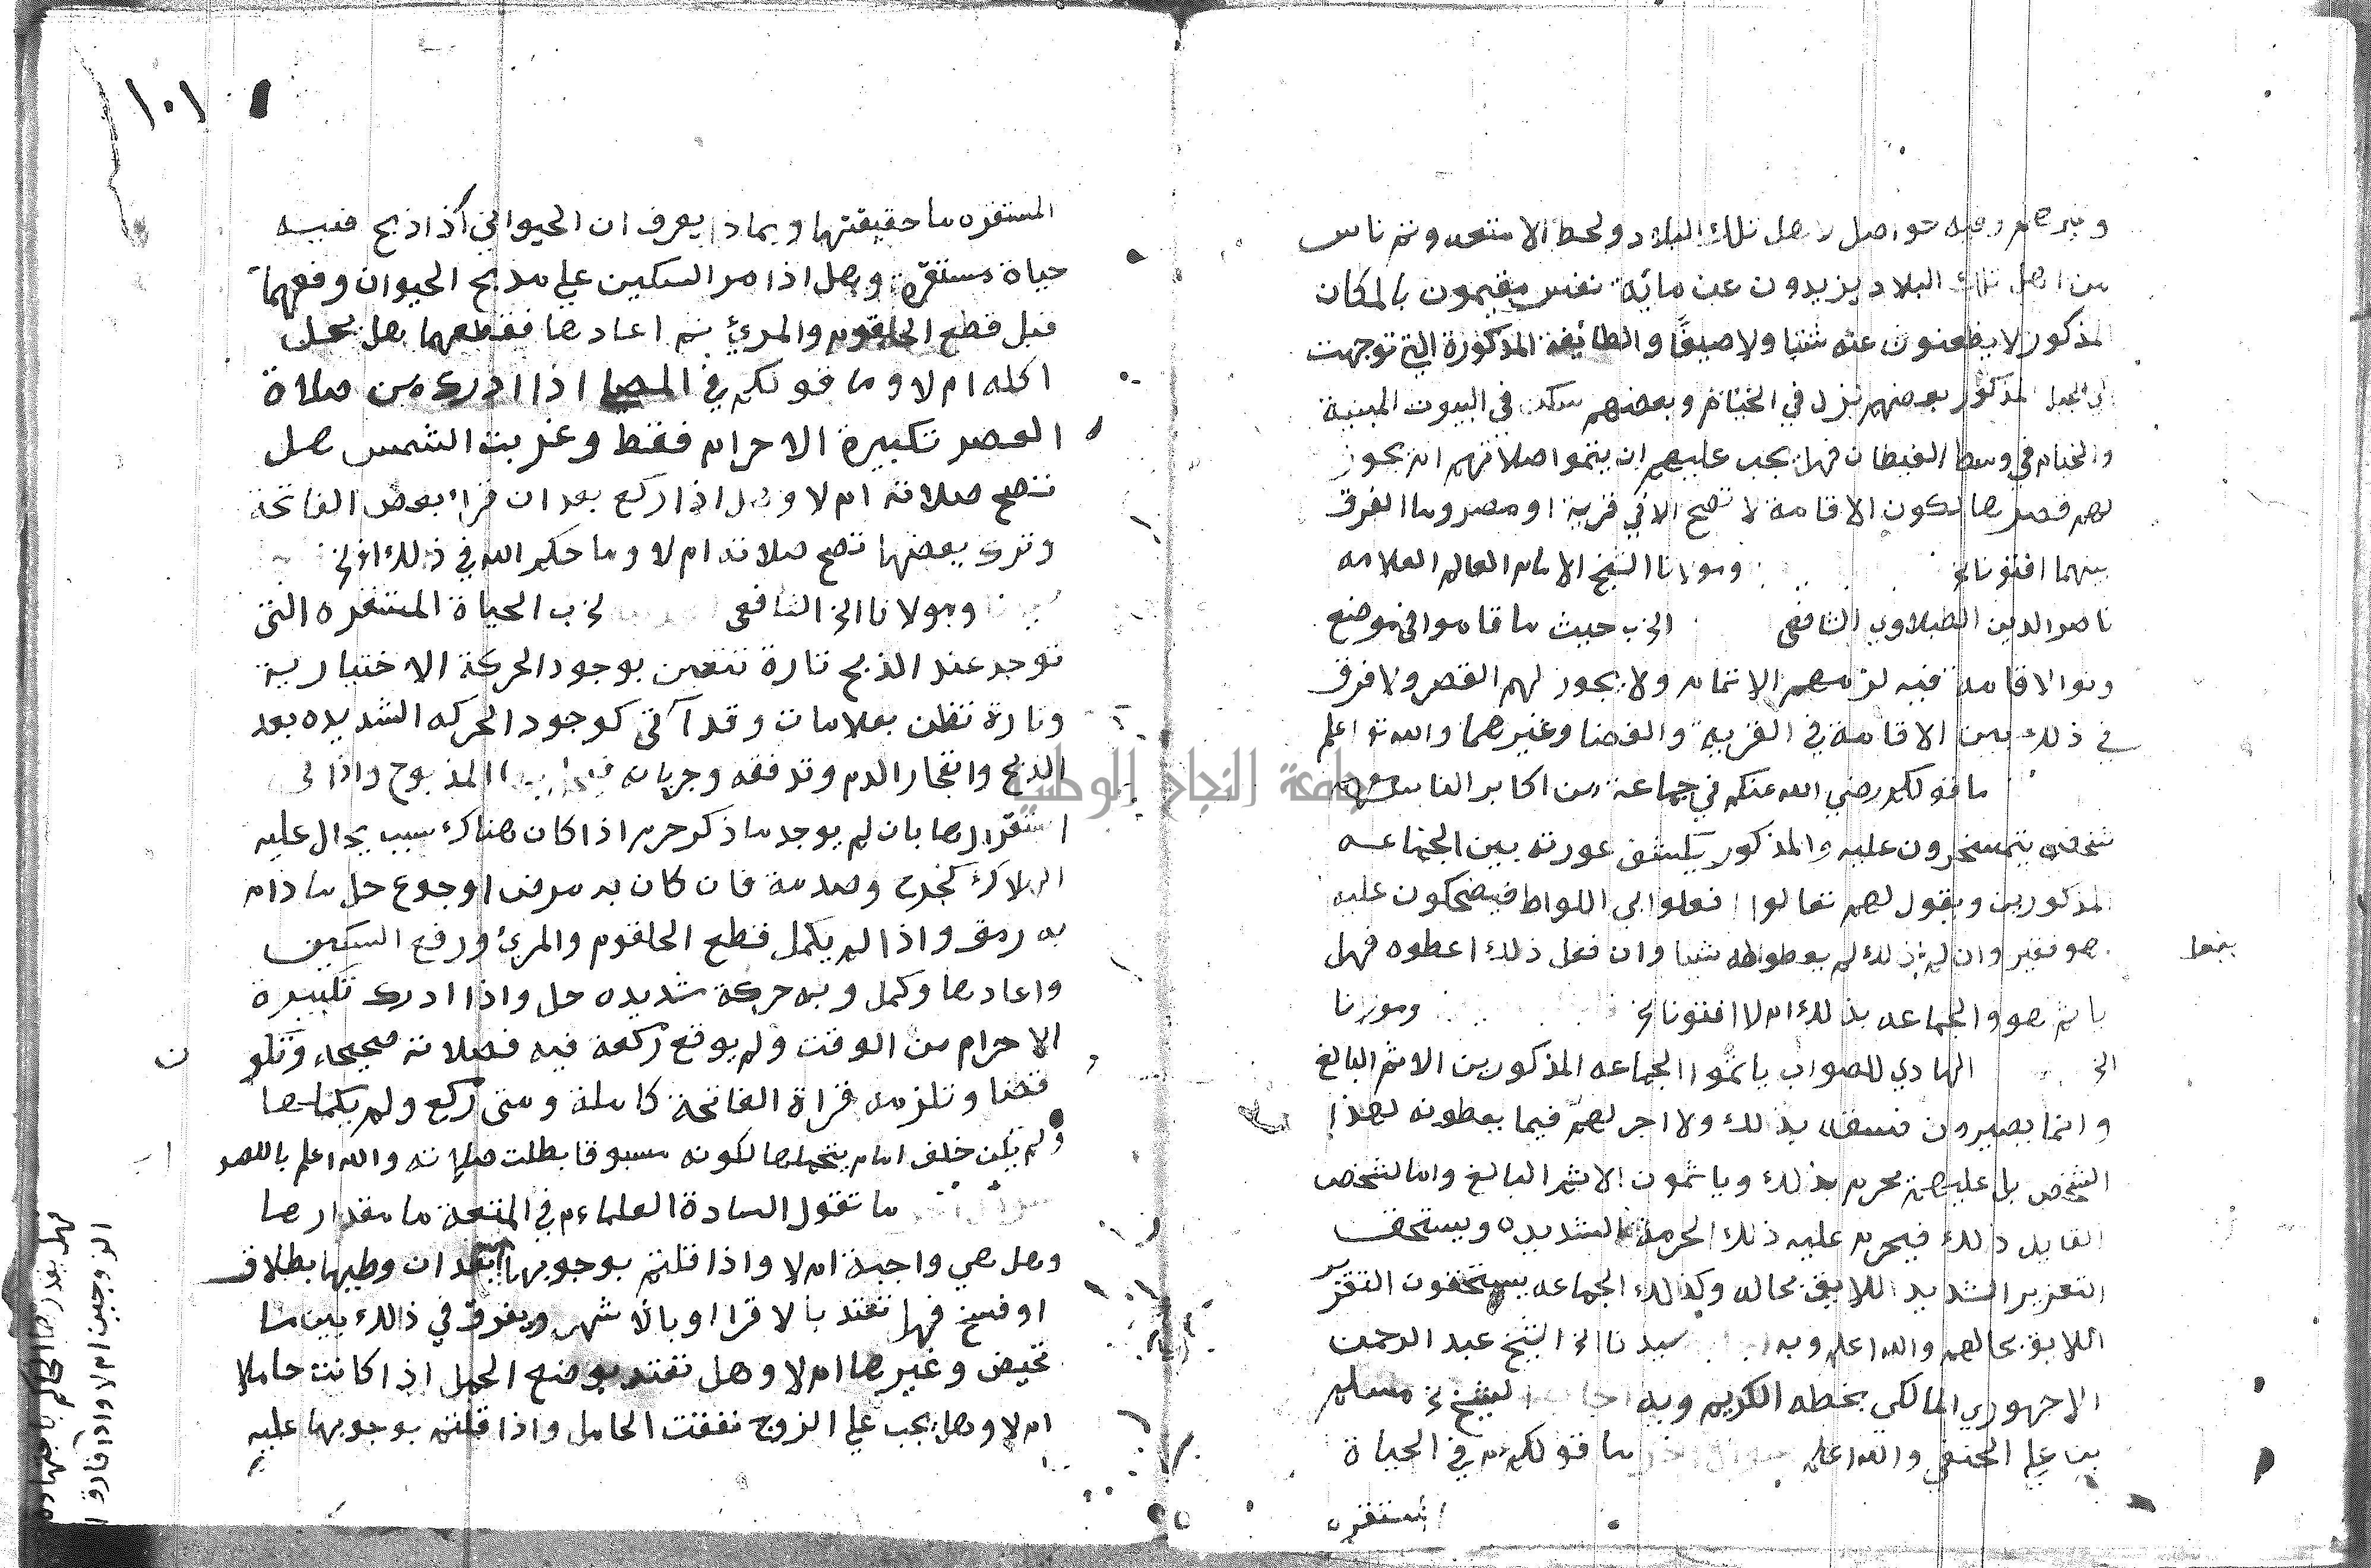 وغيرهم وفيه حواصل لاهل تلك البلاد ولحط الامتعه وثم ناس
من اهل تلك البلاد يزيدون عن مائة نفس مقيمون بالمكان
المذكور لا يظعنون عنه شتا ولا صيفا والطائفة المذكورة التي توجهت
الى المحل المذكور بعضهم نزل في الخيام وبعضهم سكن في البيوت المبنية
والخيام في وسط الغيطان فهل يجب عليهم ان يتموا صلاتهم ام يجوز
لهم قصرها لكون الاقامة لا تصح الا في قرية او مصر وما الفرق
بينهما افتونا الخ ومولانا الشيخ الامام العالم العلامه
ناصر الدين الطبلاوي الشافعي الخ ب حيث ما قاموا في موضع
ونوا الاقامة فيه لزمهم الاتمام ولا يجوز لهم القصر ولا فرق
في ذلك بين الاقامة في القرية والفضا وغيرهما والله تع اعلم
ما قولكم رضي الله عنكم في جماعة من اكابر الناس معهم
شخص يتمسخرون عليه والمذكور يكشف عورته بين الجماعه
المذكورين ويقول لهم تعالوا افعلوا بي اللواط فيضحكون عليه
هو فقير وان لم ذلك لم يعطوا له شيا وان فعل ذلك اعطوه فهل
يفعل
ياثم هو والجماعه بذلك ام لا افتونا الخ ومولانا
الخ الهادي للصواب ياثموا الجماعه المذكورين الاثم البالغ
وانما يصيرون فسقه بذلك ولا اجر لهم فيما يعطونه لهذا
الشخص بل عليهم محرم بذلك وياثمون الاثم البالغ واما لشخص
القايل ذلك فيحرم عليه ذلك الحرمة الشديده ويستحق
التعزير الشديد اللايق بحاله وكذلك الجماعه يستحقون التعزير
اللايق بحالهم والله اعلم وبه سيدنا الخ الشيخ عبد الرحمن
الاجهوري المالكي بخطه الكريم وبه اجاب الشيخ مسلم
بن علي الحنفي والله اعلم سوال اخر ما قولكم في الحياة
المستقره
١٠١
المستقره ما حقيقتها وبماذا يعرف ان الحيوان اذا ذبح فيه
حياة مستقرة وهل اذا مر السكين علي مذبح الحيوان وفعهما
قبل قطع الحلقوم والمرئ ثم اعادها فقطعهما هل يحل
اكله ام لا وما قولكم في المصلي اذا ادرك من صلاة
العصر تكبيرة الاحرام فقط وغربت الشمس هل
تصح صلاته ام لا وهل اذا ركع بعد ان قرا بعض الفاتحة
وترك بعضها تصح صلاته ام لا وما حكم الله في ذلك الخ
ومولانا الخ الشافعي الخ ب الحياة المستقره التي
توجد عند الذبح تارة تتيقن بوجود الحركة الاختيارية
وتارة تظن بعلامات وقد آتى كوجود الحركه الشديده بعد
الذبح وانفجار الدم وتدفقه وجريانه المذبوح واذا
استقرارها بان لم يوجد ما ذكر حرم اذا كان هناك سبب يحال عليه
الهلاك كجرح وصدمة فان كان به مرض او جوع حل ما دام
به رمق واذا لم يكمل قطع الحلقوم والمرئ ورفع السكين
واعادها وكمل وبه حركة شديده حل واذا ادرك تكبيرة
الاحرام من الوقت ولم يوقع ركعة فيه فصلاته صحيحه وتكو
ن
قضا وتلزمه قراة الفاتحة كاملة ومتى ركع ولم يكملها
ولم يكن خلف امام يتحملها لكونه مسبوقا بطلت صلاته والله اعلم
ما تقول السادة العلماء في المتعة ما مقدارها
وهل هي واجبة ام لا واذا قلتم بوجوبها بعد ان وطيها بطلاق
او فسخ فهل تعتد بالاقرا او بالاشهر ويفرق في ذلك بين ما
تحيض وغيرها ام لا وهل تعتد بوضع الحمل اذا كانت حاملا
ام لا وهل يجب علي الزوج نفقت الحامل واذا قلتم بوجوبها عليه
فهل يقدرها الحاكم باجتهاده
الزوجين ام لا واذا فارق ا
جامعة النجاح الوطنية